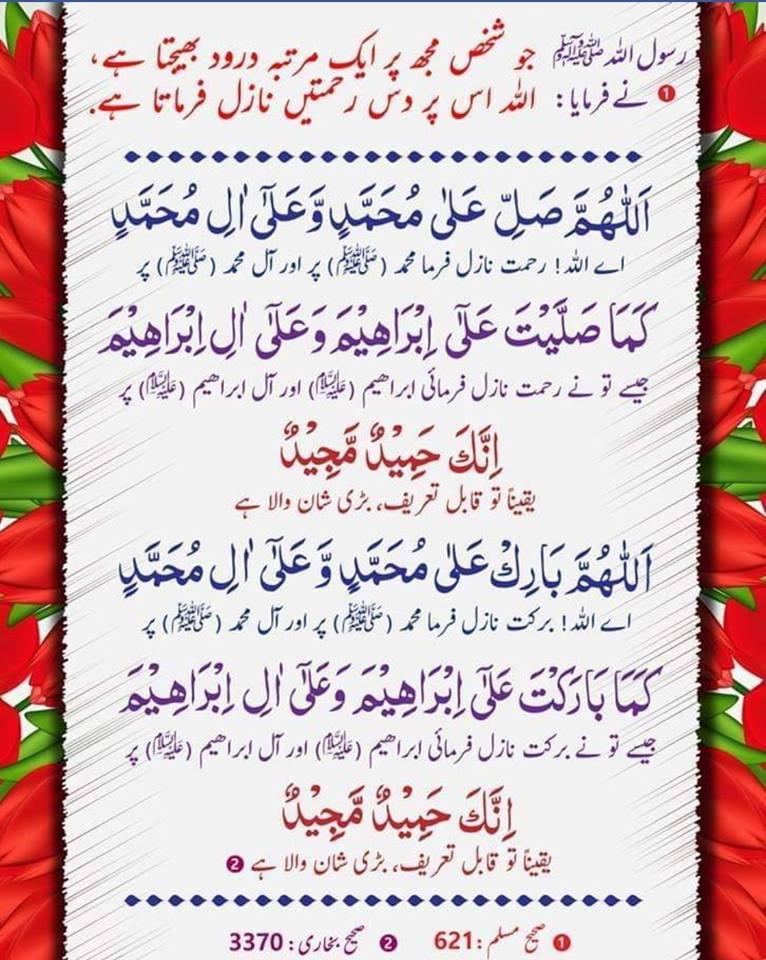 رسول اللہ ﷺ جو شخص مجھ پر ایک مرتبہ درود بھیجتا ہے،
❶ نے فرمایا: اللہ اس پر دس رحمتیں نازل فرماتا ہے.
اَللّٰهُمَّ صَلِّ عَلٰى مُحَمَّدٍ وَّعَلٰٓى اٰلِ مُحَمَّدٍ
اے اللہ! رحمت نازل فرما محمد (ﷺ) پر اور آل محمد (ﷺ) پر
كَمَا صَلَّيْتَ عَلٰٓى اِبْرَاهِيْمَ وَعَلٰٓى اٰلِ اِبْرَاهِيْمَ
جیسے تو نے رحمت نازل فرمائی ابراھیم (علیہ السلام) اور آل ابراھیم (علیہ السلام) پر
اِنَّكَ حَمِيْدٌ مَّجِيْدٌ
یقیناً تو قابل تعریف، بڑی شان والا ہے
اَللّٰهُمَّ بَارِكْ عَلٰى مُحَمَّدٍ وَّ عَلٰٓى اٰلِ مُحَمَّدٍ
اے اللہ! برکت نازل فرما محمد (ﷺ) پر اور آل محمد (ﷺ) پر
كَمَا بَارَكْتَ عَلٰٓى اِبْرَاهِيْمَ وَعَلٰٓى اٰلِ اِبْرَاهِيْمَ
جیسے تو نے برکت نازل فرمائی ابراھیم (علیہ السلام) اور آل ابراھیم (علیہ السلام) پر
اِنَّكَ حَمِيْدٌ مَّجِيْدٌ
یقیناً تو قابل تعریف، بڑی شان والا ہے ❷
❶ صحیح مسلم: 621 ❷ صحیح بخاری: 3370